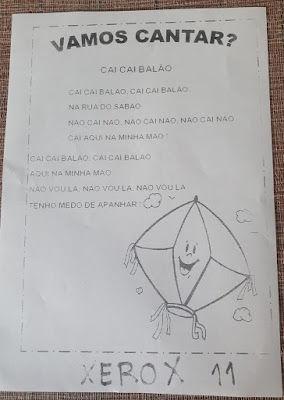 VAMOS CANTAR?
CAI CAI BALÃO
CAI CAI BALÃO, CAI CAI BALÃO
NA RUA DO SABÃO
NÃO CAI NÃO, NÃO CAI NÃO, NÃO CAI NÃO
CAI AQUI NA MINHA MÃO !
CAI CAI BALÃO, CAI CAI BALÃO
AQUI NA MINHA MÃO
NÃO VOU LÁ, NÃO VOU LÁ, NÃO VOU LÁ
TENHO MEDO DE APANHAR !
XEROX 11